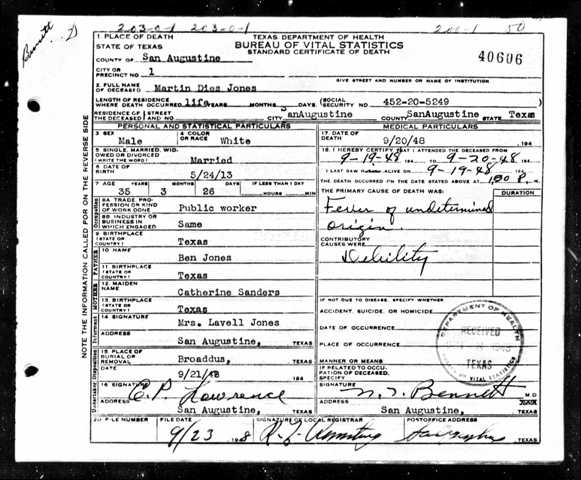 203-0-1 203-0-1 200-1 50
Bennett
TEXAS DEPARTMENT OF HEALTH
BUREAU OF VITAL STATISTICS
STANDARD CERTIFICATE OF DEATH
40606
1 PLACE OF DEATH
STATE OF TEXAS
COUNTY OF San Augustine
CITY OR PRECINCT NO. 1
GIVE STREET AND NUMBER OR NAME OF INSTITUTION
2. FULL NAME OF DECEASED Martin Dies Jones
LENGTH OF RESIDENCE WHERE DEATH OCCURRED life YEARS MONTHS DAYS. (SOCIAL SECURITY NO 452-20-5249
RESIDENCE OF THE DECEASED (STREET AND NO. SanAugustine COUNTY SanAugustine STATE Texas
PERSONAL AND STATISTICAL PARTICULARS
3. SEX Male
4. COLOR OR RACE White
5. SINGLE, MARRIED, WIDOWED OR DIVORCED (WRITE THE WORD) Married
6. DATE OF BIRTH 5/24/13
7. AGE YEARS 35 MONTHS 3 DAYS 26 IF LESS THAN 1 DAY HOURS MIN
8A. TRADE, PROFESSION OR KIND OF WORK DONE Public worker
8B. INDUSTRY OR BUSINESS IN WHICH ENGAGED Same
9. BIRTHPLACE (STATE OR COUNTRY) Texas
10. NAME Ben Jones
11. BIRTHPLACE (STATE OR COUNTRY) Texas
12. MAIDEN NAME Catherine Sanders
13. BIRTHPLACE (STATE OR COUNTRY) Texas
14. SIGNATURE Mrs. Lavell Jones
ADDRESS San Augustine, TEXAS
15. PLACE OF BURIAL OR REMOVAL Broaddus, TEXAS
DATE 9/21/48 194
16. SIGNATURE C. P. Lawrence
San Augustine, TEXAS
MEDICAL PARTICULARS
17. DATE OF DEATH 9/20/48 194
18. I HEREBY CERTIFY THAT I ATTENDED THE DECEASED FROM
9-19-48 194 TO 9-20-48 194
I LAST SAW ALIVE ON 9-19-48 194
THE DEATH OCCURRED ON THE DATE STATED ABOVE AT 100 P. M.
THE PRIMARY CAUSE OF DEATH WAS: DURATION
Fever of undetermined
origin.
CONTRIBUTORY CAUSES WERE:
Debility
IF NOT DUE TO DISEASE, SPECIFY WHETHER
ACCIDENT, SUICIDE, OR HOMICIDE
DATE OF OCCURRENCE
PLACE OF OCCURRENCE
MANNER OR MEANS
IF RELATED TO OCCUPATION OF DECEASED, SPECIFY
SIGNATURE Bennett M.D
ADDRESS San Augustine, TEXAS
DEPARTMENT OF HEALTH
RECEIVED
TEXAS
OF VITAL STATISTICS
20 FILE NUMBER
FILE DATE 9/23 1948
SIGNATURE OF LOCAL REGISTRAR
POSTOFFICE ADDRESS TEXAS
NOTE THE INFORMATION CALLED FOR ON THE REVERSE SIDE
Occupation
FATHER
MOTHER
Informant